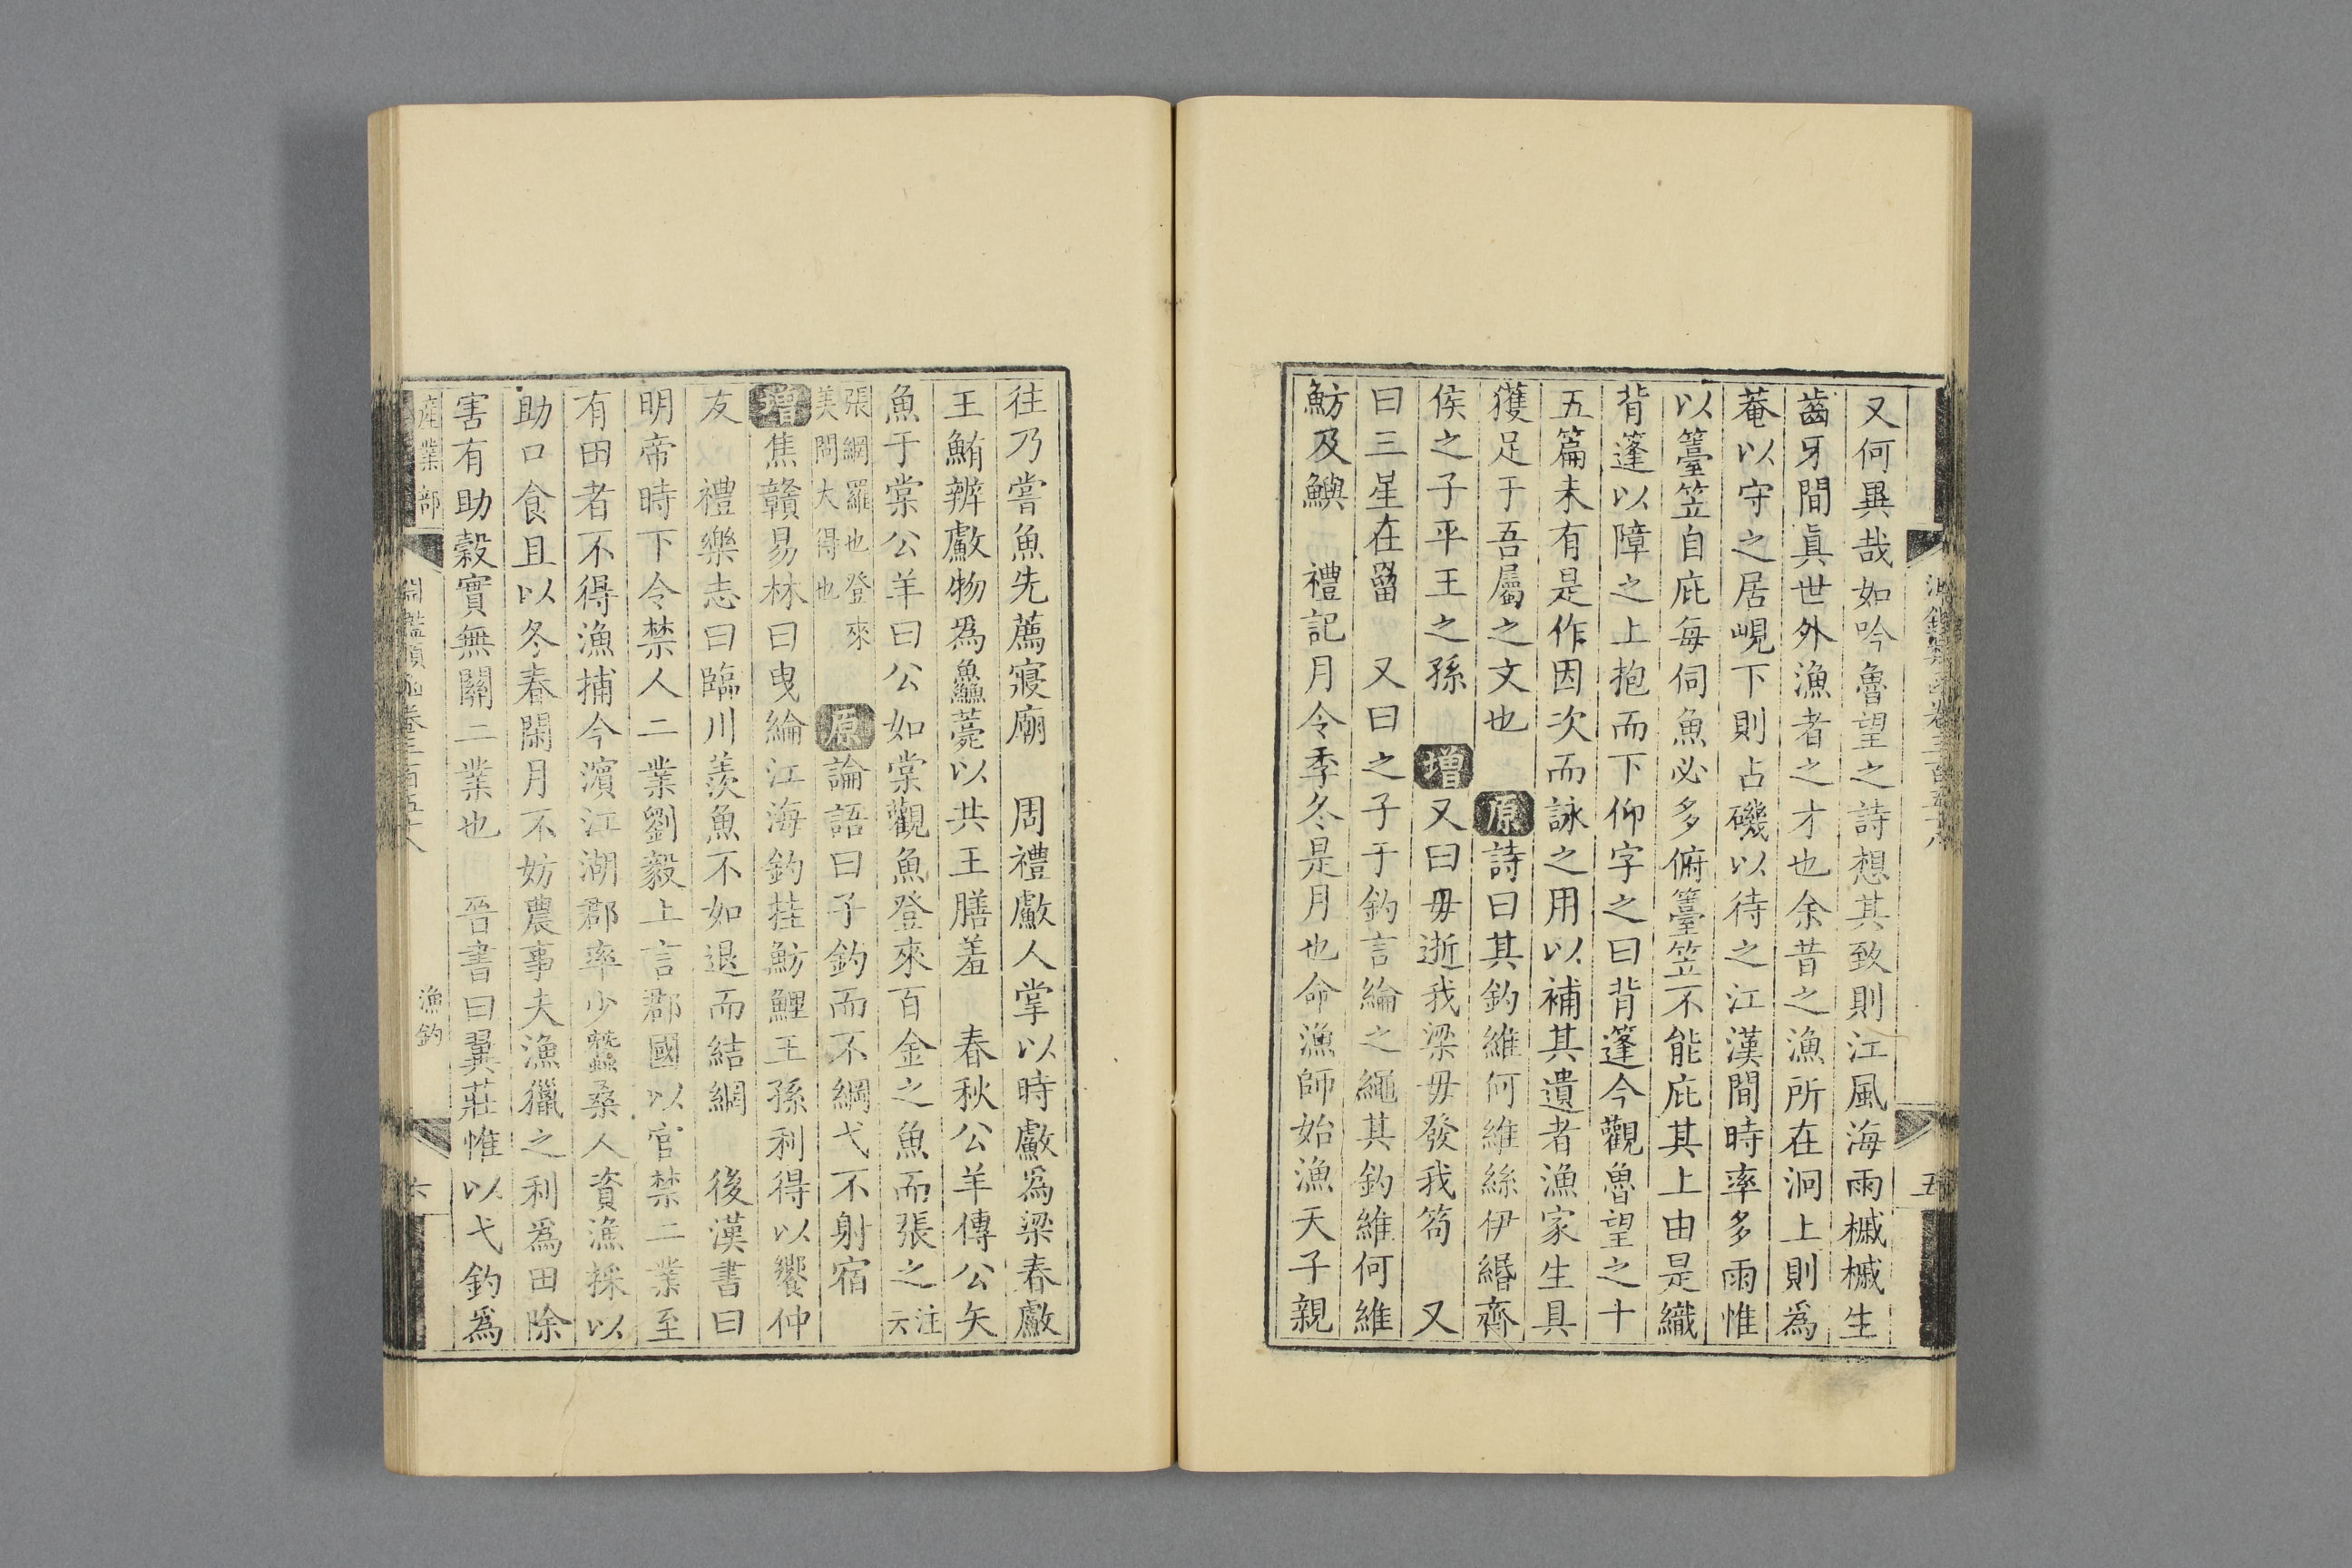 又何異哉如吟魯望之詩想其致則江風海雨槭槭生
齒牙間真世外漁者之才也余昔之漁所在洞上則為
菴以守之居峴下則占磯以待之江漢間時率多雨惟
以籉笠自庇每伺魚必多俯籉笠不能庇其上由是織
背篷以障之上抱而下仰字之曰背篷今觀魯望之十
五篇未有是作因次而詠之用以補其遺者漁家生具
獲足于吾屬之文也 原 詩曰其釣維何維絲伊緡齊
侯之子平王之孫 增 又曰毋逝我梁毋發我笱 又
曰三星在罶 又曰之子于釣言綸之繩其釣維何維
魴及鱮 禮記月令季冬是月也命漁師始漁天子親
五
往乃嘗魚先薦寢廟 周禮䱷人掌以時䱷為梁春䱷
王鮪辨䱷物爲鱻薧以共王膳羞 春秋公羊傳公矢
魚于棠公羊曰公如棠觀魚登來百金之魚而張之 注云
張網羅也登來
美聞大得也
原 論語曰子釣而不綱弋不射宿
增 焦贛易林曰曳綸江海釣挂魴鯉王孫利得以饗仲
友 禮樂志曰臨川羨魚不如退而結網 後漢書曰
明帝時下令禁人二業劉毅上言郡國以官禁二業至
有田者不得漁捕今濱江湖郡率少蠶桑人資漁採以
助口食且以冬春閑月不妨農事夫漁獵之利爲田除
害有助穀實無關二業也 晉書曰翼莊惟以弋釣爲
產業部
淵鑑類函卷三百五十八
漁釣
六